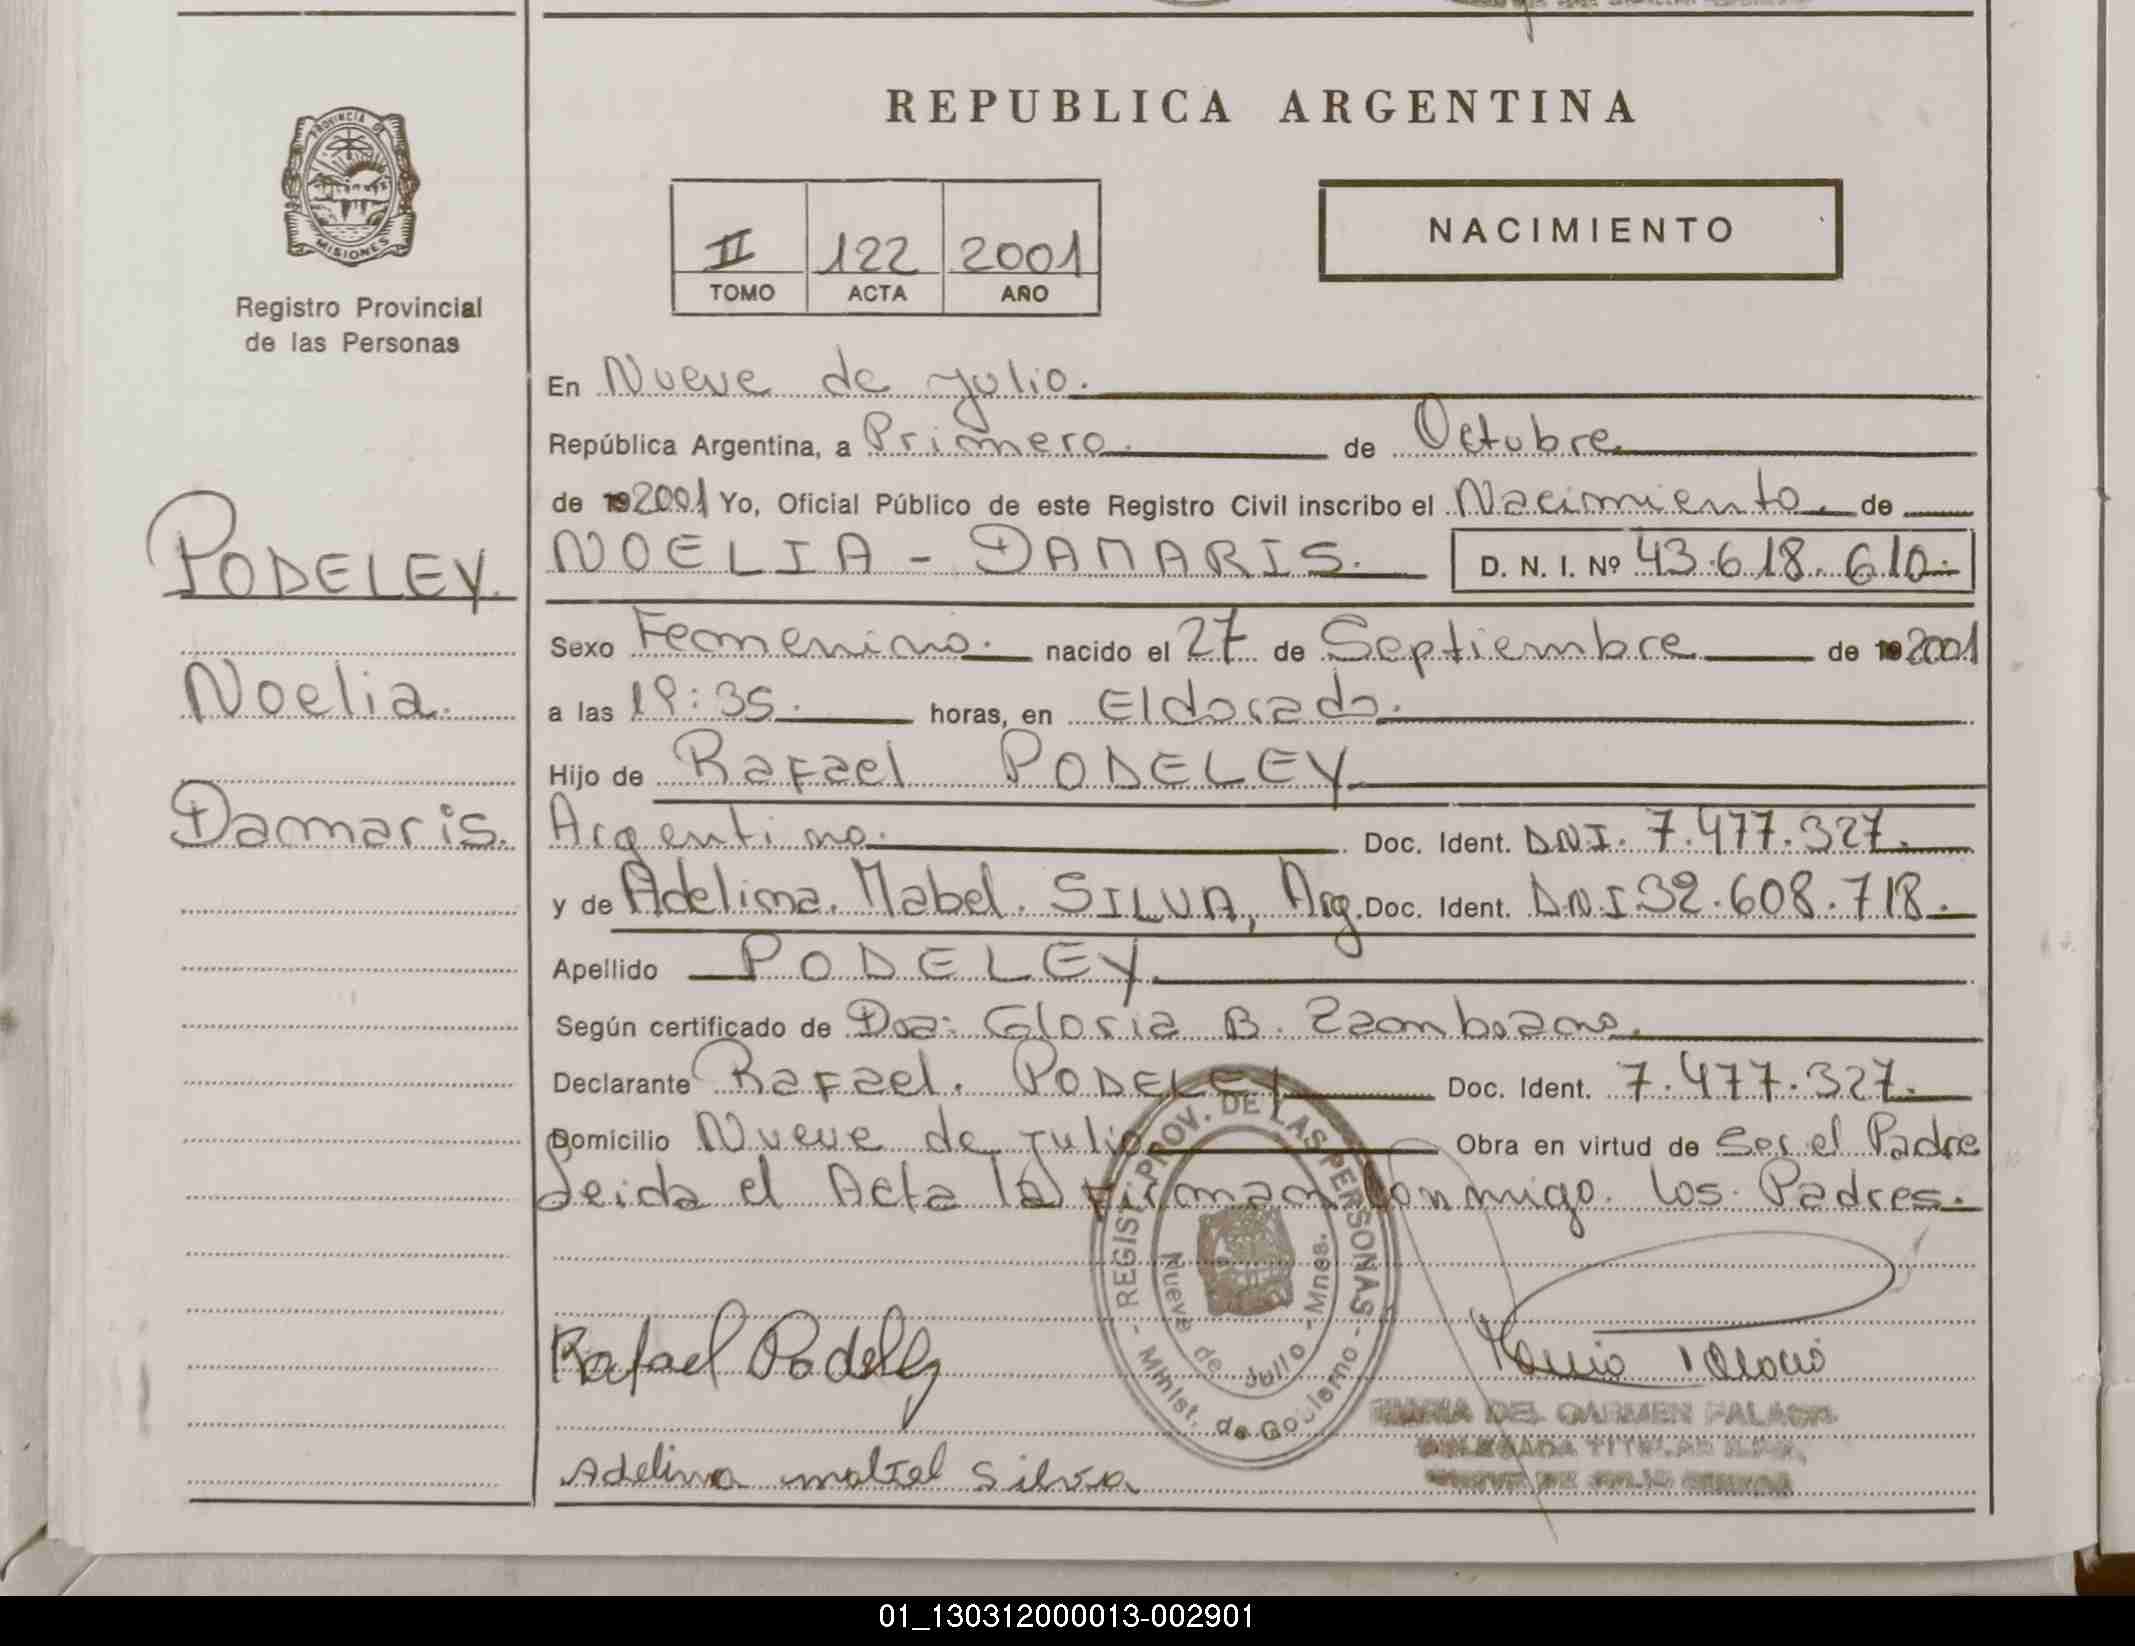 PROVINCIA DE
MISIONES
Registro Provincial
de las Personas
REPUBLICA ARGENTINA
II 122 2001
TOMO ACTA AÑO
NACIMIENTO
En Nueve de Julio.
República Argentina, a Primero. de Octubre
de 192001 Yo, Oficial Público de este Registro Civil inscribo el Nacimiento de
PODELEY.
Noelia.
Damaris.
NOELIA - DAMARIS. D. N. I. Nº 43.618.610.-
Sexo Femenino. nacido el 27 de Septiembre de 192001
a las 19:35. horas, en Eldorado.
Hijo de Rafael PODELEY.
Argentino. Doc. Ident. DNI. 7.477.327.
y de Adelina. Mabel. SILVA, Arg. Doc. Ident. D.N.I 32.608.718.
Apellido PODELEY.
Según certificado de Dra: Gloria B.
Declarante Rafael. PODELEY Doc. Ident. 7.477.327.
Domicilio Nueve de Julio Obra en virtud de Ser el Padre
Leida el Acta la Firman Conmigo. los Padres.
REGIST. PROV. DE LAS PERSONAS
- Minist. de Gobierno -
Nueve de Julio - Mnes.
Rafael Podeley
MARIA DEL CARMEN PALACIO
DELEGADA TITULAR
NUEVE DE JULIO
Adelina mabel silva
01_130312000013-002901